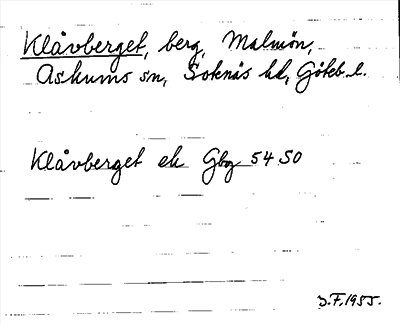 Klåvberget, berg, Malmön,
Askums sn, Sotenäs hd, Göteb. l.
Klåvberget ek Gbg 54 SO
D.F. 1955.